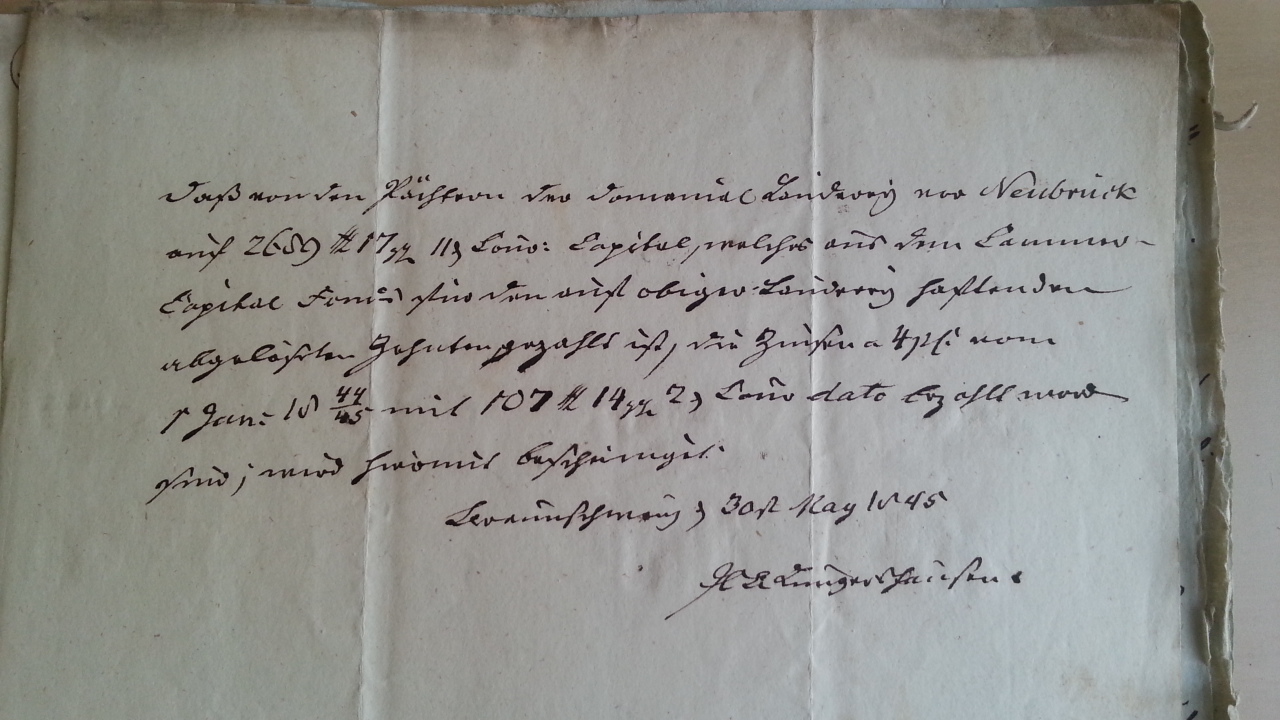 Daß von den Pächtern der Domanial Länderey vor Neubrück
auf 2689 rth 17 ggr 11 d Conv: Capital, welches aus dem Cammer-
Capital Fonds für den auf obiger Länderey haftenden
abgelößten Zehnten gezahlt ist, die Zinsen a 4 pC: vom
1 Jan: 18 44/45 mit 107 rth 14 ggr 2 d Conv dato bezahlt word
sind; wird hiermit bescheiniget.
Braunschweig d 30st May 1845
Dungershausen